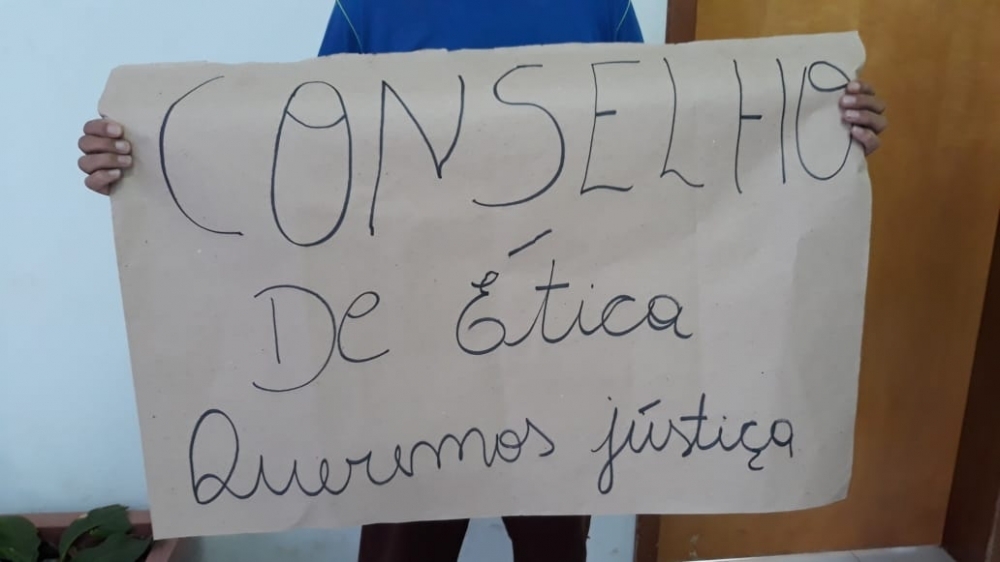 CONSELHO
De Ética
Queremos jústiça